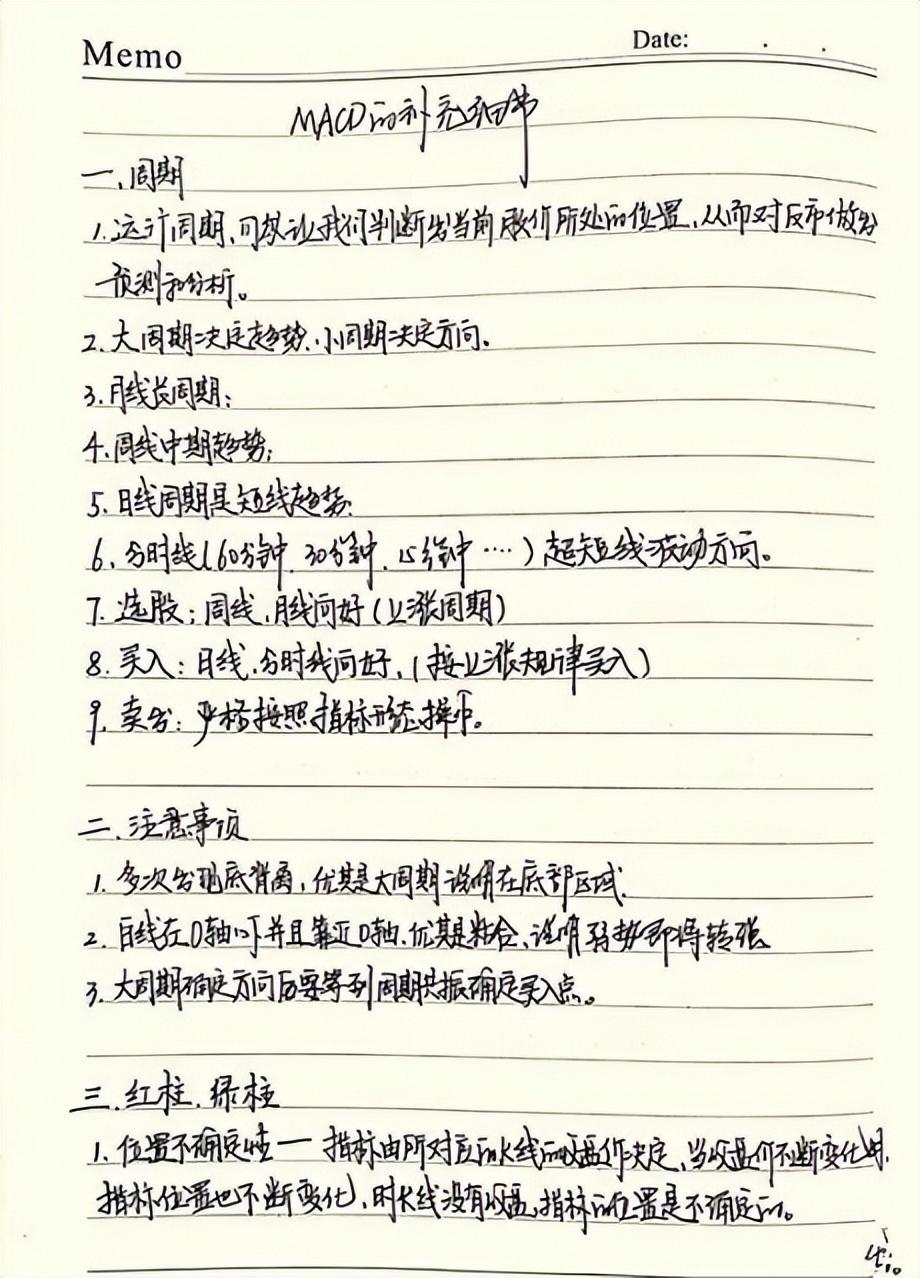 Memo
Date:
MACD的补充细节
一、周期
1.运行周期,可以让我们判断出当前股价所处的位置,从而对后市做出
预测和分析。
2.大周期决定趋势、小周期决定方向。
3.月线长周期;
4.周线中期趋势;
5.日线周期是短线趋势
6、分时线(60分钟、30分钟、15分钟····)超短线波动方向。
7.选股:周线、月线向好(上涨周期)
8.买入:日线、分时线向好,(按上涨规律买入)
9.卖出:严格按照指标形态操作。
二.注意事项
1.多次出现底背离,尤其是大周期说明在底部区域.
2.白线在0轴以下并且靠近0轴、尤其是粘合、说明弱势即将转强
3.大周期确定方向后要等到周期共振确定买入点。
三.红柱.绿柱
1.位置不确定性一指标由所对应的K线的收盘价决定、当收盘价不断变化时,
指标位置也不断变化,时K线没有收盘,指标的位置是不确定的。